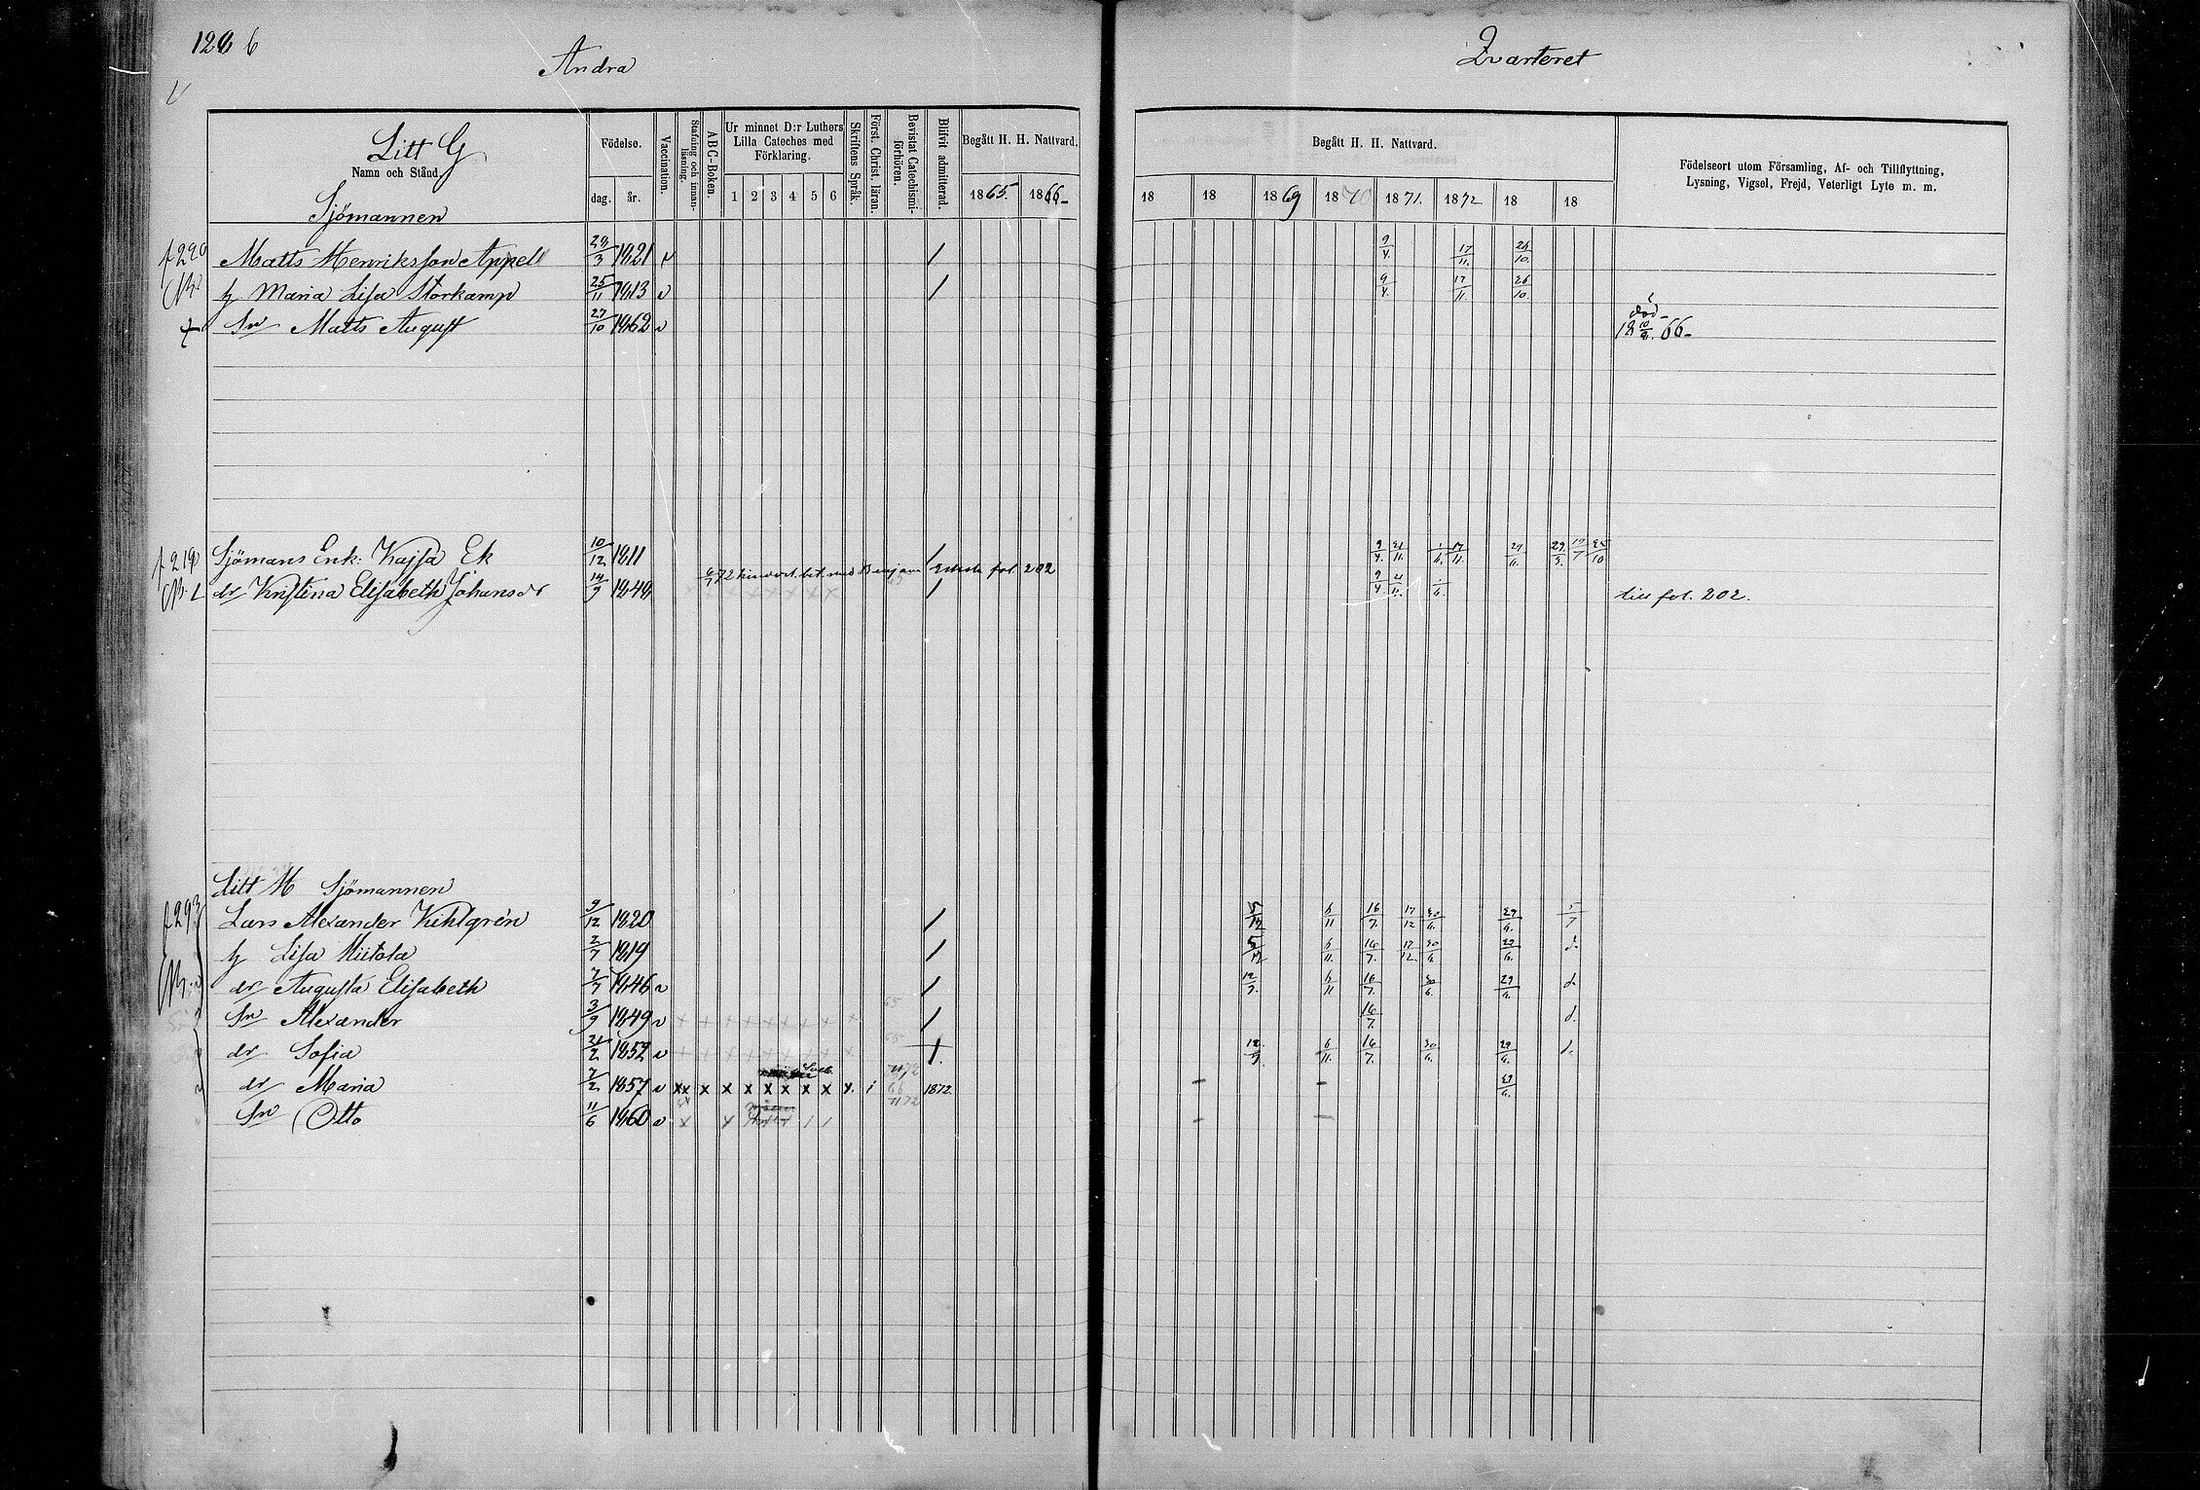 126
Andra
Qvarteret
Litt G
Namn och Stånd.
Sjömannen
Födelse.
dag. år.
Vaccination.
Stafning och innanläsning.
ABC-Boken.
Ur minnet D:r Luthers
Lilla Cateches med
Förklaring.
1 2 3 4 5 6
Skriftens Språk.
Först. Christ. läran.
Bevistat Catechismi-
förhören.
Blifvit admitterad.
Begått H. H. Nattvard.
1865. 1866
Begått H. H. Nattvard.
18 18 1869 1870 1871. 1872 18 18
Födelseort utom Församling, Af- och Tillflyttning,
Lysning, Vigsel, Frejd, Veterligt Lyte m. m.
f 220 Matts Henriksson Appell 29/3 1821 v / 9/4. 17/11. 26/10.
h Maria Lisa Storkamp 25/11 1813 v / 9/4. 17/11 26/10.
+ Sn Matts August 27/10 1862 v död
18 10/9. 66
f 219 Sjömans Enk: Kajsa Ek 10/12 1811 / 9/4. 21/11. 1/6. 17/11. 29/6.
6/7 72 hinderl. bet. med Benjam Eklund fol. 202
dr Kristina Elisabeth Johansdr 14/9 1848 / 9/4. 21/11. 1/6. till fol. 202.
Litt H Sjömannen
f 293 Lars Alexander Kihlgrén 9/12 1820 / 5/12 6/11 16/7. 17/12 30/6. 29/6. 5/7
h Lisa Miitola 2/7 1819 / 5/12 6/11. 16/7. 17/12. 30/6 29/6. d.
dr Augusta Elisabeth 7/7 1846 v / 12/9. 6/11 16/7. 30/6. 29/6. d.
Sn Alexander 3/9 1849 v x x x x x x x x x 65 / 16/7. d.
dr Sofia 21/2 1852 v 12/9. 6/11. 16/7. 30/6. 29/6. d.
dr Maria 7/2 1857 v xx x x x x x x x x. i 1872. 29/6.
Sn Otto 11/6 1860 v x